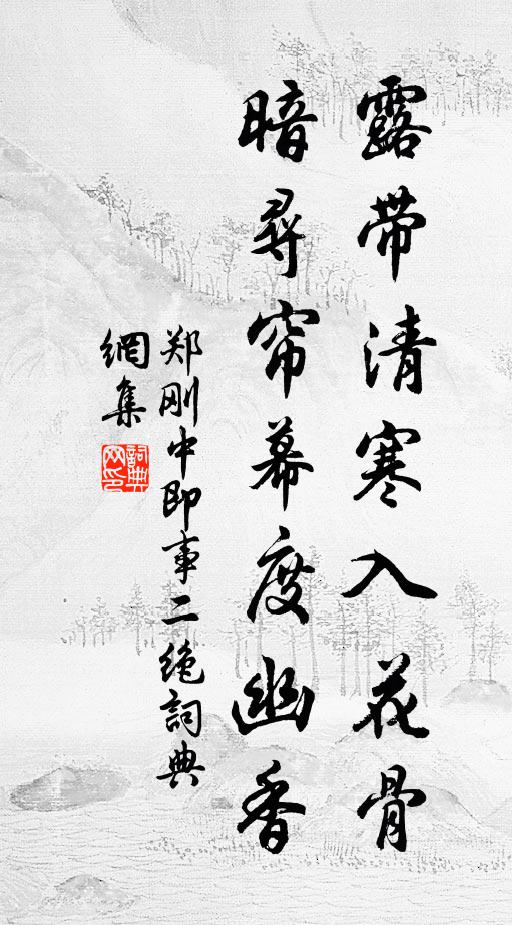 露带清寒入花骨
暗寻帘幕度幽香
郑刚中即事二绝詞典
網集
詞典
网印